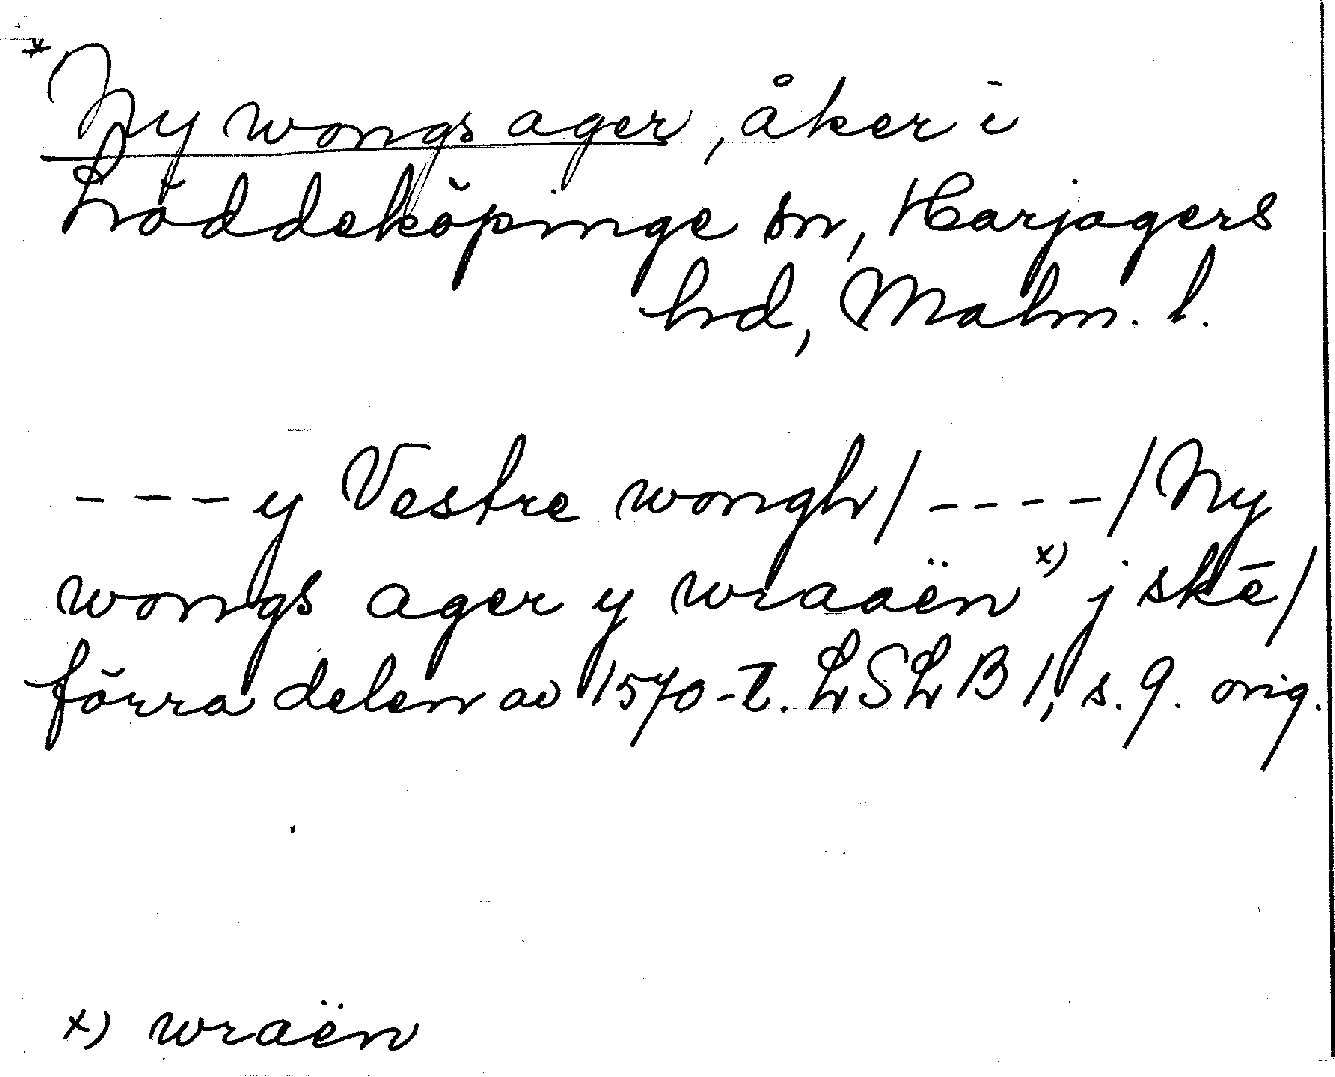 * Ny wongs ager, åker i
Löddeköpinge sn, Harjagers
hd, Malm. l.
- - - y Vestre wongh/ - - - - / Ny
wongs ager y wraaën x) j skē/
förra delen av 1570-t. LSLB 1, s. 9. orig.
x) wraën